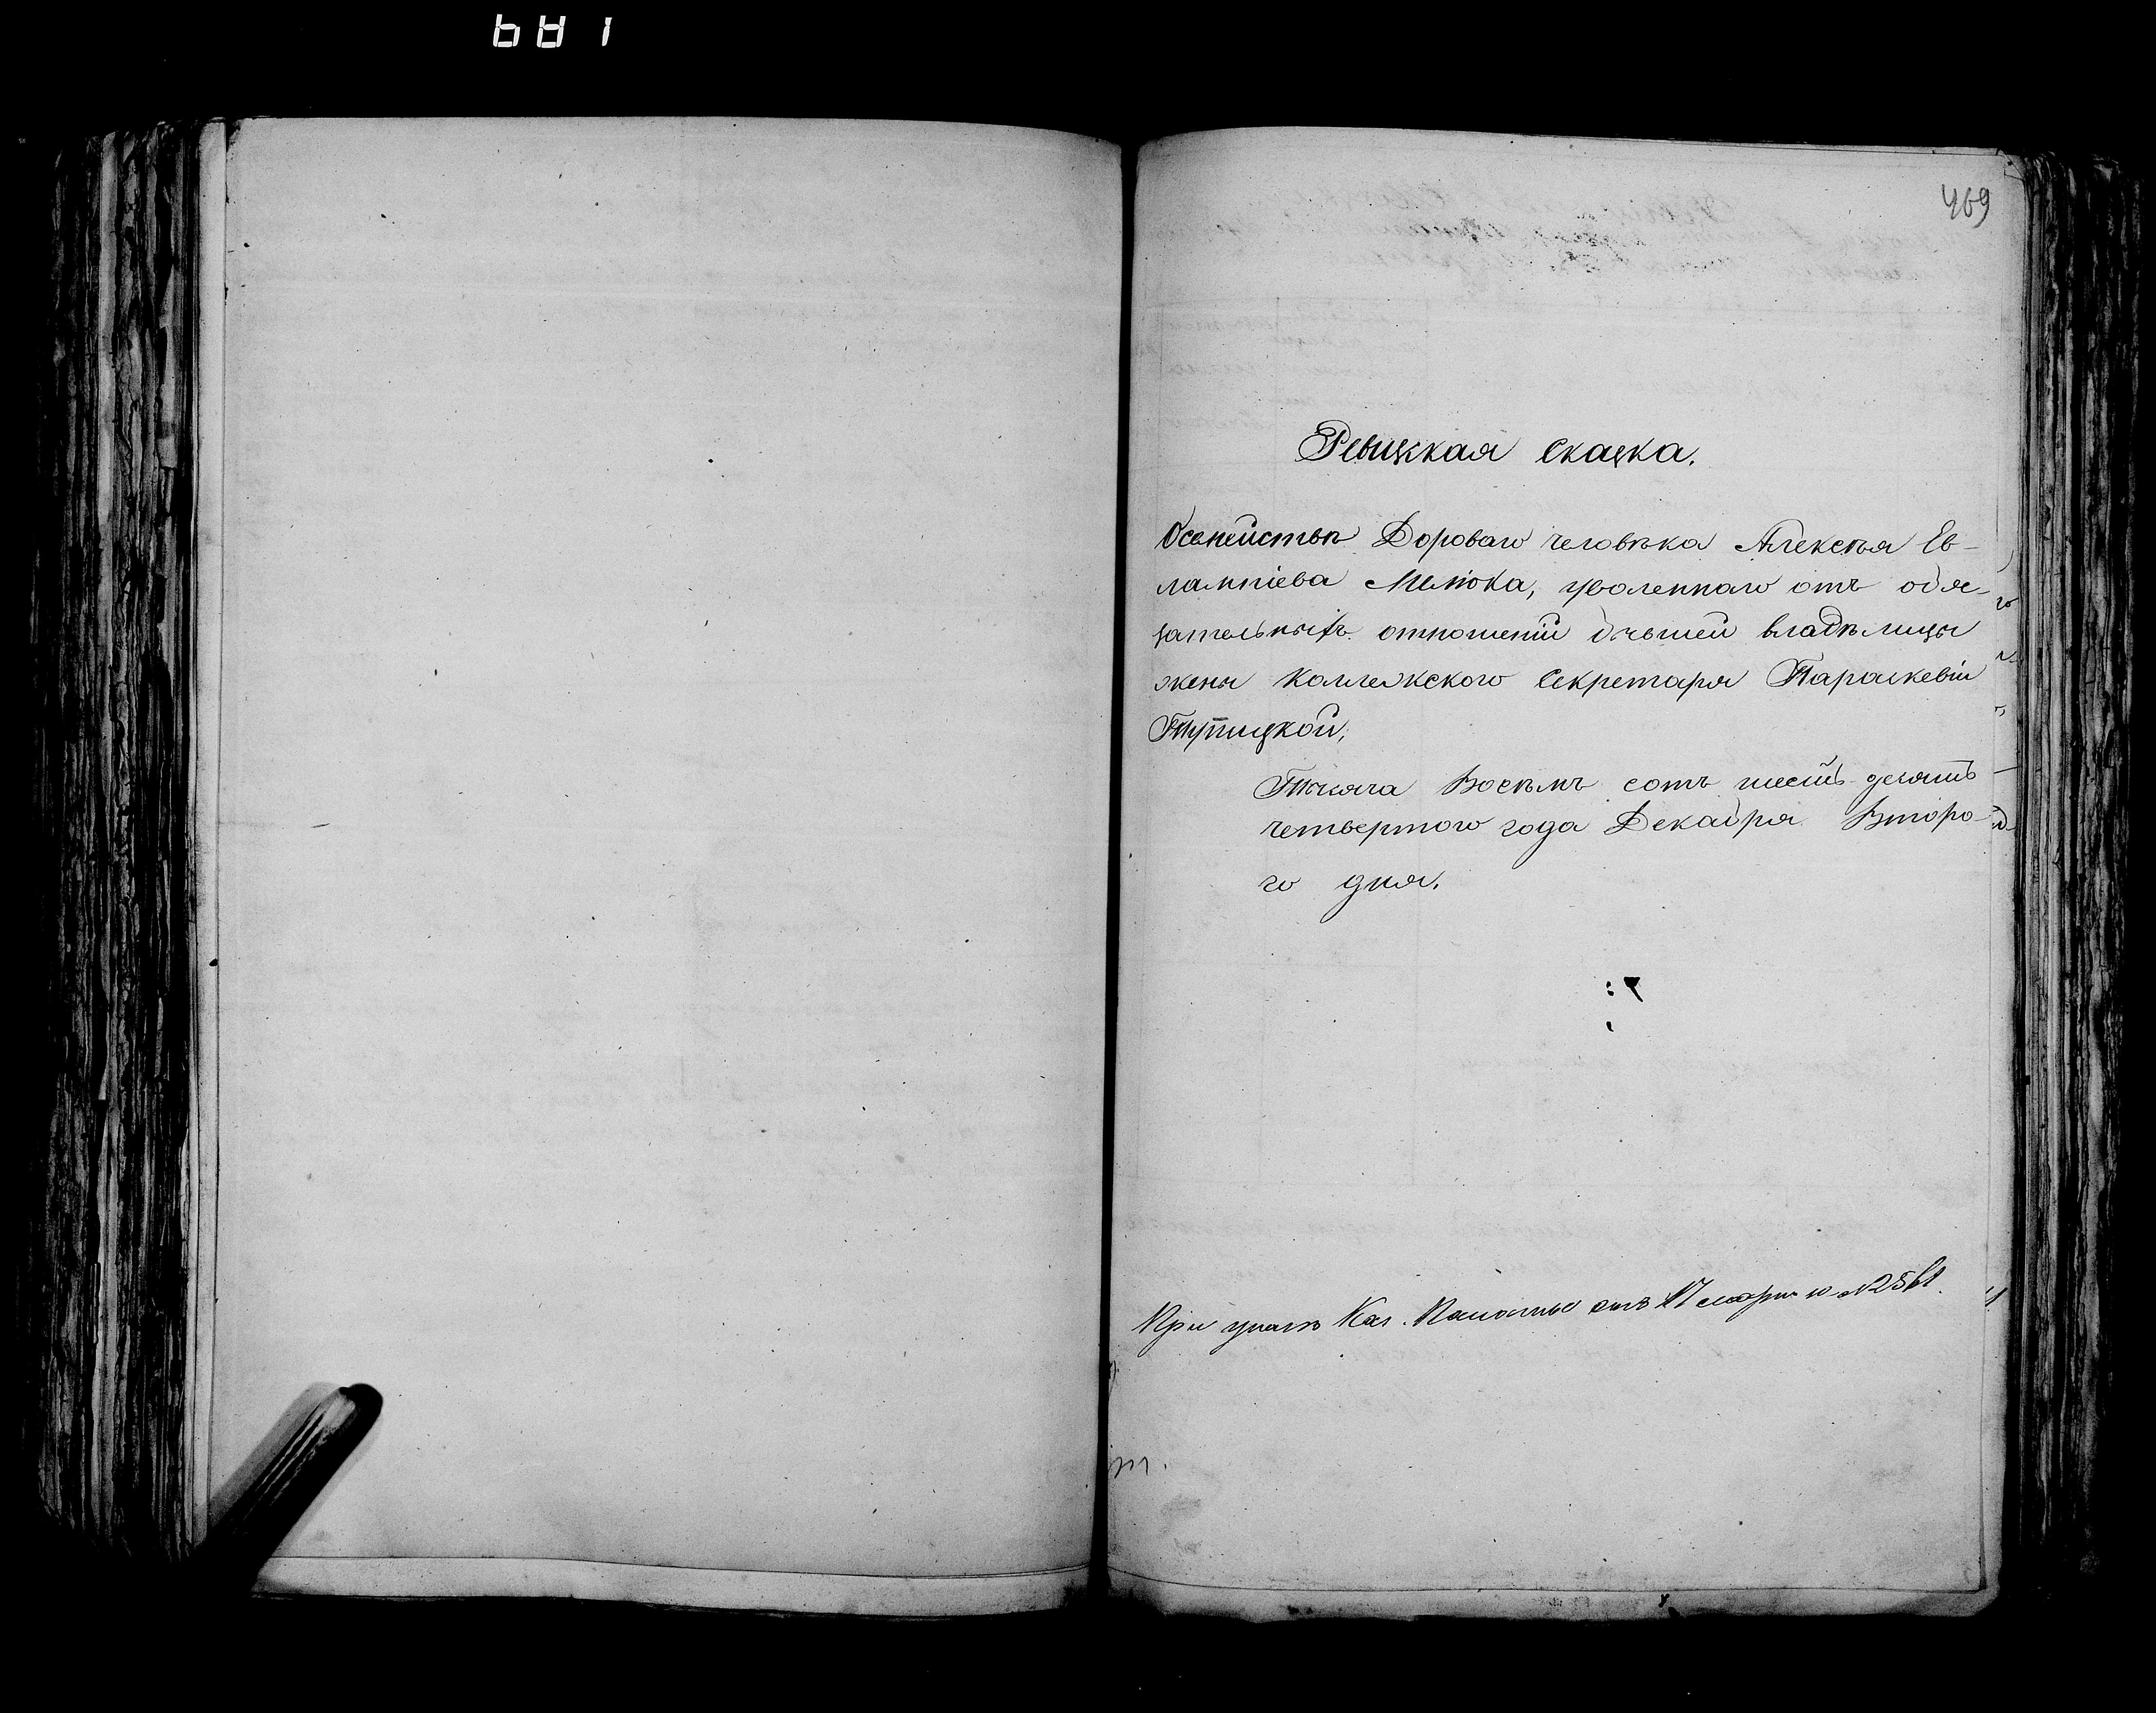 469
Ревизкая сказка.
Осемействѣ Дороваго человѣка Алексѣя Ев-
лампіева Мелюка, уволеннаго отъ обя-
зательныхъ отношеній бывшей владѣлицы
жены Коллежского Секретаря Параскевіи
Тупицкой,
Тысяча Восѣмъ сотъ шесть десятъ
четвертого года Декабря Второ-
го дня.
При указѣ Каз. Палаты отъ 17